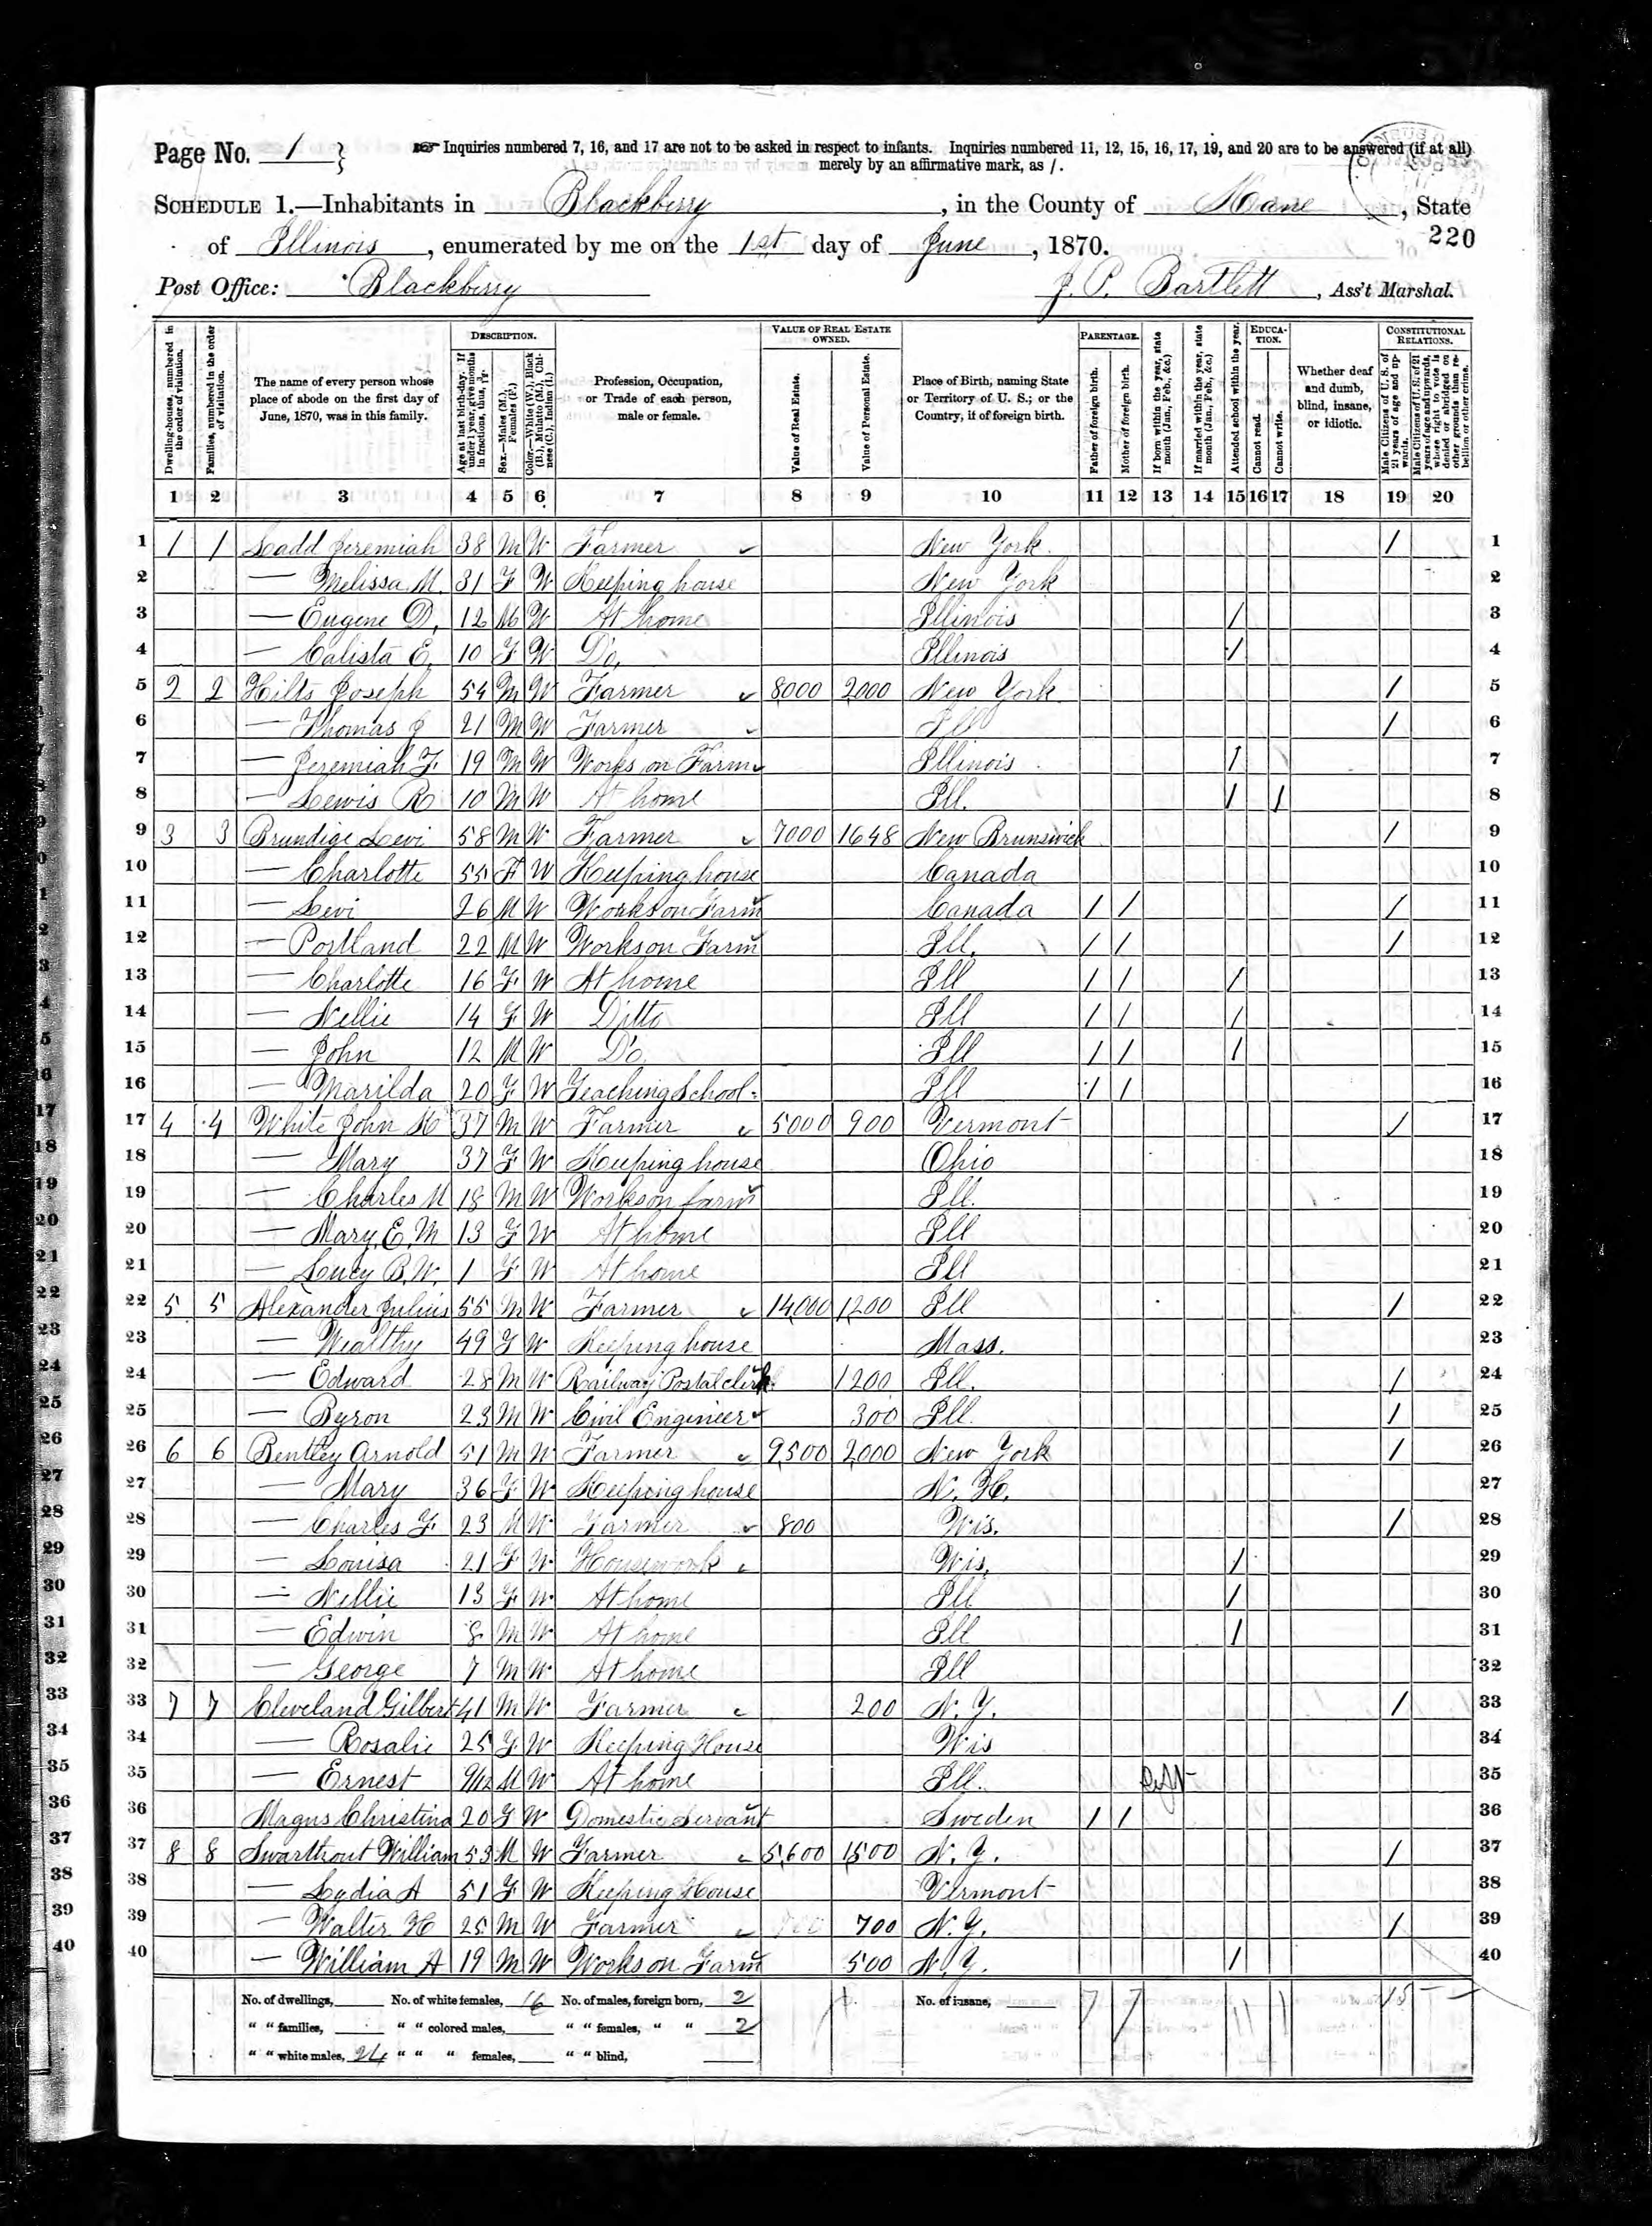 Page No. 1 } Inquiries numbered 7, 16, and 17 are not to be asked in respect to infants. Inquiries numbered 11, 12, 15, 16, 17, 19, and 20 are to be answered (if at all)
merely by an affirmative mark, as /.
SCHEDULE 1.—Inhabitants in Blackberry, in the County of Kane, State
220
of Illinois, enumerated by me on the 1st day of June, 1870.
Post Office: Blackberry J. P. Bartlett, Ass't Marshal.
Dwelling-houses, numbered in the order of visitation.
Families, numbered in the order of visitation.
The name of every person whose place of abode on the first day of June, 1870, was in this family.
DESCRIPTION.
Age at last birth-day. If under 1 year, give months in fractions, thus, 3/12
Sex.—Males (M.), Females (F.)
Color.—White (W.), Black (B.), Mulatto (M.), Chinese (C.), Indian (I.)
Profession, Occupation, or Trade of each person, male or female.
VALUE OF REAL ESTATE OWNED.
Value of Real Estate.
Value of Personal Estate.
Place of Birth, naming State or Territory of U. S.; or the Country, if of foreign birth.
PARENTAGE.
Father of foreign birth.
Mother of foreign birth.
If born within the year, state month (Jan., Feb., &c.)
If married within the year, state month (Jan., Feb., &c.)
Attended school within the year.
EDUCATION.
Cannot read.
Cannot write.
Whether deaf and dumb, blind, insane, or idiotic.
CONSTITUTIONAL RELATIONS.
Male Citizens of U. S. of 21 years of age and upwards.
Male Citizens of U. S. of 21 years of age and upwards, whose right to vote is denied or abridged on other grounds than rebellion or other crime.
1 2 3 4 5 6 7 8 9 10 11 12 13 14 15 16 17 18 19 20
1 1 1 Ladd Jeremiah 38 M W Farmer New York / 1
2 — Melissa M. 31 F W Keeping house New York 2
3 — Eugene D. 12 M W At home Illinois / 3
4 — Calista E. 10 F W Do. Illinois / 4
5 2 2 Hilts Joseph 54 M W Farmer 8000 2000 New York / 5
6 — Thomas J 21 M W Farmer Ill / 6
7 — Jeremiah F. 19 M W Works on Farm Illinois / 7
8 — Lewis R 10 M W At home Ill. / / 8
9 3 3 Brundige Levi 58 M W Farmer 7000 1648 New Brunswick / 9
10 — Charlotte 55 F W Keeping house Canada 10
11 — Levi 26 M W Works on Farm Canada / / / 11
12 — Portland 22 M W Works on Farm Ill. / / / 12
13 — Charlotte 16 F W At home Ill / / / 13
14 — Nellie 14 F W Ditto Ill / / / 14
15 — John 12 M W Do Ill / / / 15
16 — Marilda 20 F W Teaching School Ill / / 16
17 4 4 White John H 37 M W Farmer 5000 900 Vermont / 17
18 — Mary 37 F W Keeping house Ohio 18
19 — Charles M 18 M W Works on farm Ill. 19
20 — Mary E. M 13 F W At home Ill 20
21 — Lucy B. W. 1 F W At home Ill 21
22 5 5 Alexander Julius 55 M W Farmer 14,000 1,200 Ill / 22
23 — Wealthy 49 F W Keeping house Mass. 23
24 — Edward 28 M W Railway Postal clerk 1200 Ill. / 24
25 — Byron 23 M W Civil Engineer 300 Ill. / 25
26 6 6 Bentley Arnold 51 M W Farmer 9,500 2,000 New York / 26
27 — Mary 36 F W Keeping house N. H. 27
28 — Charles F. 23 M W Farmer 800 Wis. / 28
29 — Louisa 21 F W Housework Wis. / 29
30 — Nellie 13 F W At home Ill / 30
31 — Edwin 8 M W At home Ill / 31
32 — George 7 M W At home Ill 32
33 7 7 Cleveland Gilbert 41 M W Farmer 200 N. Y. / 33
34 — Rosalie 25 F W Keeping House Wis 34
35 — Ernest 9/12 M W At home Ill. 35
36 Magus Christina 20 F W Domestic Servant Sweden / / 36
37 8 8 Swarthout William 53 M W Farmer 5,600 1,500 N. Y. / 37
38 — Lydia A 51 F W Keeping House Vermont 38
39 — Walter H 25 M W Farmer 700 N. Y. / 39
40 — William A 19 M W Works on Farm 500 N. Y. / 40
No. of dwellings, No. of white females, 16 No. of males, foreign born, 2 No. of insane, 7 7 11 1 18
" " families, " " colored males, " " females, " " 2
" " white males, 24 " " " females, " " blind,